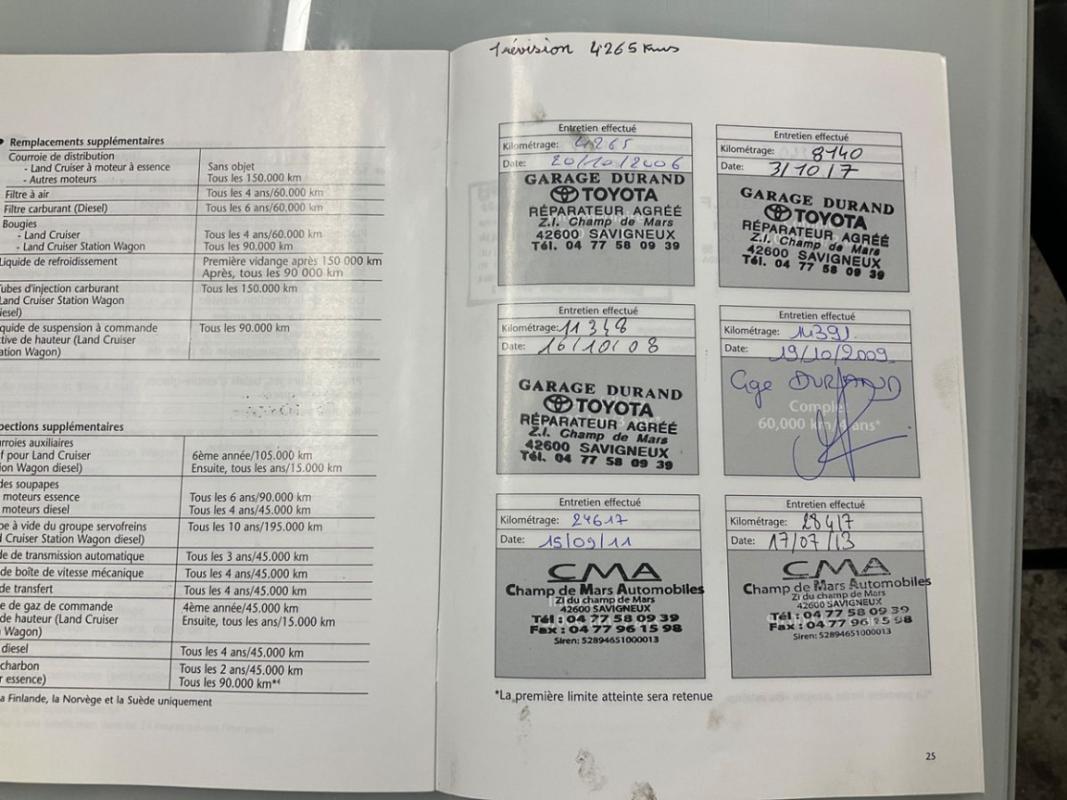 Remplacements supplémentaires
Courroie de distribution
- Land Cruiser à moteur à essence Sans objet
- Autres moteurs Tous les 150.000 km
Filtre à air Tous les 4 ans/60.000 km
Filtre carburant (Diesel) Tous les 6 ans/60.000 km
Bougies
- Land Cruiser Tous les 4 ans/60.000 km
- Land Cruiser Station Wagon Tous les 90.000 km
Liquide de refroidissement Première vidange après 150 000 km
Après, tous les 90 000 km
ubes d'injection carburant Tous les 150.000 km
Land Cruiser Station Wagon
iesel)
quide de suspension à commande Tous les 90.000 km
tive de hauteur (Land Cruiser
ation Wagon)
pections supplémentaires
urroies auxiliaires
f pour Land Cruiser 6ème année/105.000 km
ion Wagon diesel) Ensuite, tous les ans/15.000 km
des soupapes
moteurs essence Tous les 6 ans/90.000 km
moteurs diesel Tous les 4 ans/45.000 km
pe à vide du groupe servofreins Tous les 10 ans/195.000 km
d Cruiser Station Wagon diesel)
de de transmission automatique Tous les 3 ans/45.000 km
de boîte de vitesse mécanique Tous les 4 ans/45.000 km
de transfert Tous les 4 ans/45.000 km
e de gaz de commande 4ème année/45.000 km
de hauteur (Land Cruiser Ensuite, tous les ans/15.000 km
Wagon)
diesel Tous les 4 ans/45.000 km
charbon Tous les 2 ans/45.000 km
r essence) Tous les 90.000 km*
a Finlande, la Norvège et la Suède uniquement
révision 4265 Kms
Entretien effectué
Kilométrage: 4265
Date: 20/10/2006
GARAGE DURAND
TOYOTA
RÉPARATEUR AGRÉÉ
Z.I. Champ de Mars
42600 SAVIGNEUX
Tél. 04 77 58 09 39
Entretien effectué
Kilométrage: 8140
Date: 3/10/7
GARAGE DURAND
TOYOTA
RÉPARATEUR AGRÉÉ
Z.I. Champ de Mars
42600 SAVIGNEUX
Tél. 04 77 58 09 39
Entretien effectué
Kilométrage: 11348
Date: 16/10/08
GARAGE DURAND
TOYOTA
RÉPARATEUR AGRÉÉ
Z.I. Champ de Mars
42600 SAVIGNEUX
Tél. 04 77 58 09 39
Entretien effectué
Kilométrage: 14391
Date: 19/10/2009
Gge DURAND
Complet
60,000 km/4 ans*
Entretien effectué
Kilométrage: 24617
Date: 15/09/11
CMA
Champ de Mars Automobiles
ZI du champ de Mars
42600 SAVIGNEUX
Tél : 04 77 58 09 39
Fax : 04 77 96 15 98
Siren: 52894651000013
Entretien effectué
Kilométrage: 28417
Date: 17/07/13
CMA
Champ de Mars Automobiles
ZI du champ de Mars
42600 SAVIGNEUX
Tél : 04 77 58 09 39
Fax : 04 77 96 15 98
Siren: 52894651000013
*La première limite atteinte sera retenue
25